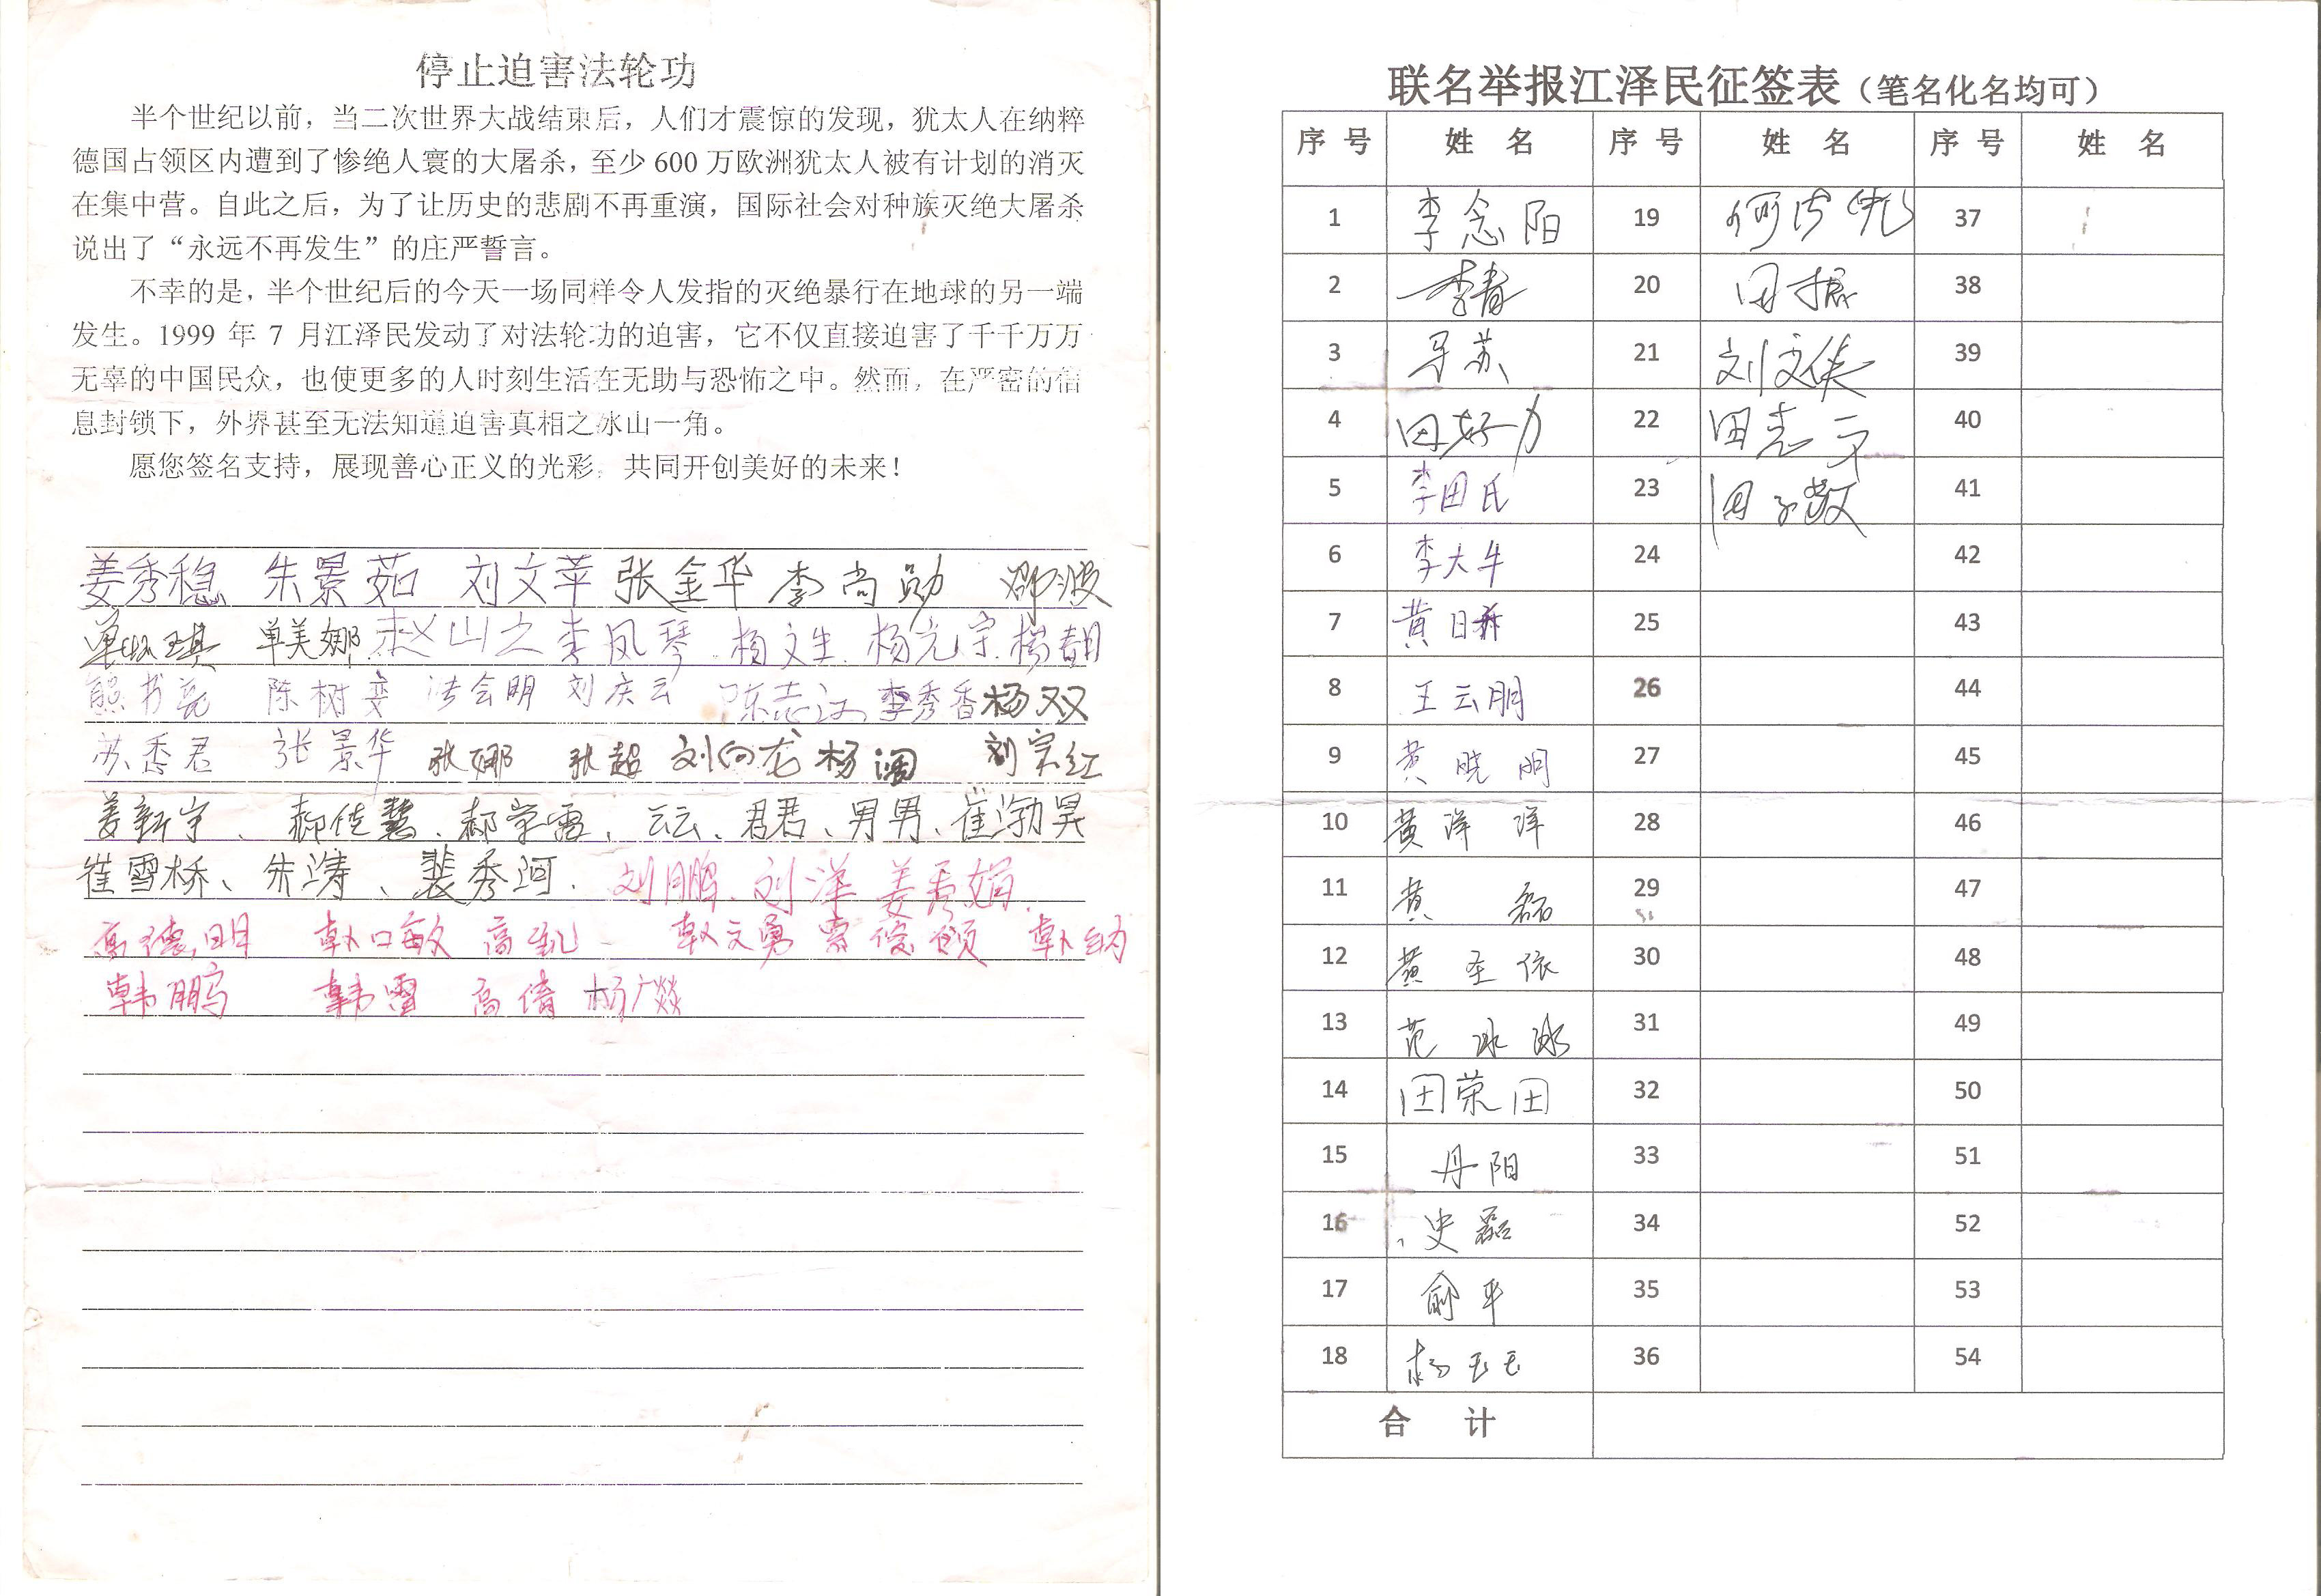 停止迫害法轮功
半个世纪以前，当二次世界大战结束后，人们才震惊的发现，犹太人在纳粹
德国占领区内遭到了惨绝人寰的大屠杀，至少 600 万欧洲犹太人被有计划的消灭
在集中营。自此之后，为了让历史的悲剧不再重演，国际社会对种族灭绝大屠杀
说出了“永远不再发生”的庄严誓言。
不幸的是，半个世纪后的今天一场同样令人发指的灭绝暴行在地球的另一端
发生。1999 年 7 月江泽民发动了对法轮功的迫害，它不仅直接迫害了千千万万
无辜的中国民众，也使更多的人时刻生活在无助与恐怖之中。然而，在严密的信
息封锁下，外界甚至无法知道迫害真相之冰山一角。
愿您签名支持，展现善心正义的光彩，共同开创美好的未来！
姜秀稳 朱景茹 刘文苹 张金华 李尚勋 邵波
单美娜 赵山之 李凤琴 杨文生 杨光宗
熊书亮 陈树峦 刘庆云 李秀香 杨双
苏香君 张景华 张娜 张超 刘向龙 杨阔 刘宾红
姜新宇、郝佳慧、郝学雷、云云、君君、男男、崔渤昊
崔雪桥、朱涛、裴秀河、刘鹏、刘洋 姜秀娟
高德明 韩口敏 高凯 韩文勇 韩纳
韩鹏 韩雷 高倩 杨广燚
联名举报江泽民征签表（笔名化名均可）
序号 姓名 序号 姓名 序号 姓名
1 李念阳 19 37
2 李青 20 田振 38
3 马苏 21 刘文侠 39
4 田好力 22 田志 40
5 李田氏 23 田子敬 41
6 李大牛 24 42
7 黄日 25 43
8 王云朋 26 44
9 黄晓明 27 45
10 黄洋洋 28 46
11 黄磊 29 47
12 黄圣依 30 48
13 范冰冰 31 49
14 田荣田 32 50
15 丹阳 33 51
16 史磊 34 52
17 俞平 35 53
18 杨玉玉 36 54
合计